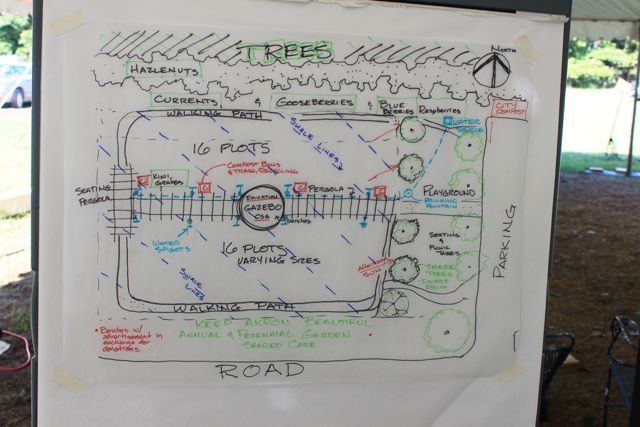 TREES
NORTH
HAZLENUTS
CURRENTS & GOOSEBERRIES & BLUE BERRIES Raspberries
CITY COMPOST
WALKING PATH
WATER SOURCE
SWALE LINES
16 PLOTS
COMPOST BINS & TRASH/RECYCLING
KIWI, GRAPES
SEATING PERGOLA
EDUCATION GAZEBO CSA
PERGOLA
benches
PLAYGROUND
DRINKING FOUNTAIN
WATER SPIGOTS
16 PLOTS
VARYING SIZES
SEATING & PICNIC TABLES
PARKING
SHADE TREES
FRUIT
SWALE LINES
WALKING PATH
KEEP AKRON BEAUTIFUL
ANNUAL & PERENNIAL GARDEN
SHARED CARE
*Benches w/ advertisement in exchange for donations.
ROAD